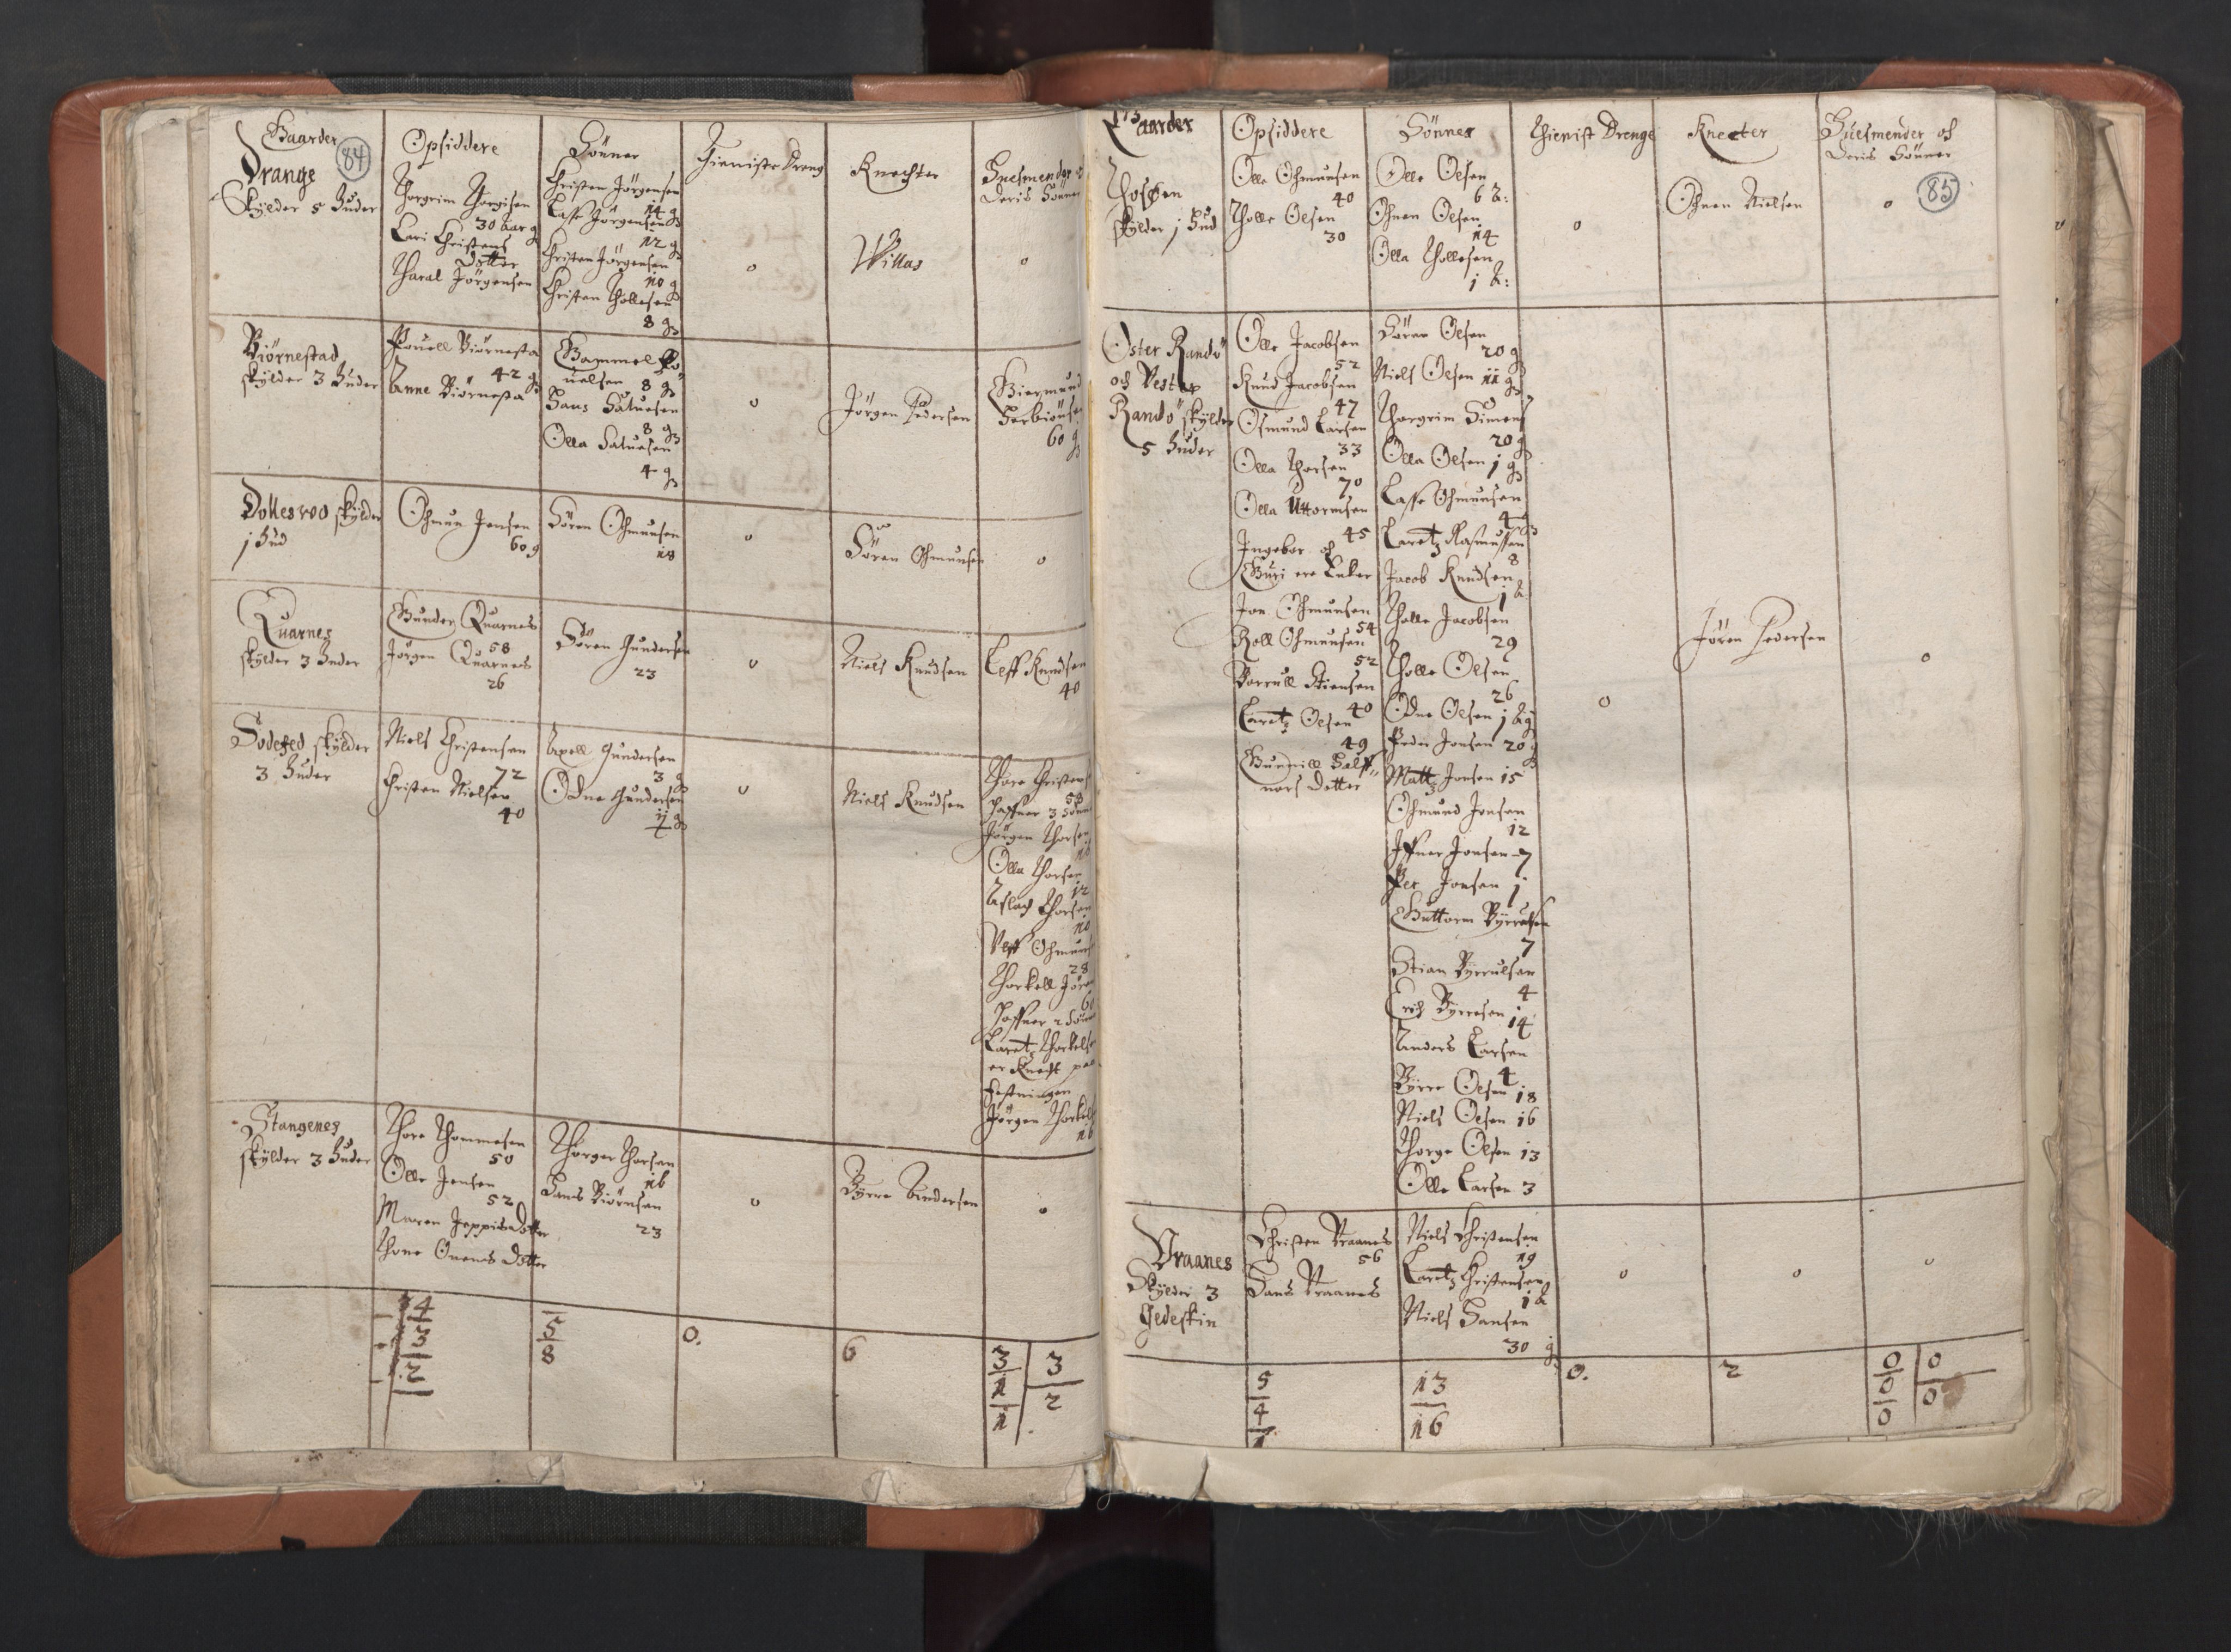 Gaarder
84
Opsiddere
Sönner
Thieniste Dreng
Knechter
Huusmender
Deris Sönner
Drange
Skylder 5 Huder
Thorgrim Thorgisen
30 aar g
Lari Christens
Dotter
Tharal Jörgensen
Christen Jörgensen
14 g
Lasse Jörgensen
12 g
Christen Jörgensen
10 g
Christen Thollesen
8 g
0
Willas
0
Biörnestad
skylder 3 Huder
Pouell Biörnesta
42 g
Anne Biörnesta
Gammel Po
uelsen 8 g
Hans Saluesen
8 g
Olla Saluesen
4 g
0
Jörgen Pedersen
60 g
Dollesroo skylder
j Hud
Ohmun Jensen
60 g
Sören Ohmunsen
18
0
Sören Ohmunsen
0
Quarnes
skylder 3 Huder
Gunder Quarnes
58
Jörgen Quarnes
26
Sören Gundersen
23
0
Niels Knudsen
Leff Knudsen
40
Sodefed skylder
3 Huder
Niels Christensen
72
Christen Nielsen
40
Axell Gundersen
3 g
Odne Gundersen
0
Niels Knudsen
Thore Christens
58
haffuer 3 Sönn
Jörgen Thorsen
Olla Thorsen
12
Aslach Thorsen
10
Ohmuns
28
Thorkell Jören
60
haffuer 2 Sönner
Laretz Thorkelsen
er Knecht paa
Festningen
Jörgen Thorkels
16
Stangenes
skylder 3 Huder
Thore Thommesen
50
Olle Jensen
52
Maren Jeppis Dotter
Thone Onens Dotter
Thorger Thorsen
16
Hans Biörnsen
23
0
Byrre Andersen
0
14
5
2
5
8
0.
6
3
1
1
3
2
Gaarder
Opsiddere
Sönner
Thienist Drenge
Knecter
Huusmender och
Deris Sönner
85
skylder j Hud
Olle Ohmunsen
40
Tholle Olsen
30
Olle Olsen
6 &:
Ohnen Olsen
14
Olla Thollesen
1 &:
0
Ohnen Nielsen
0
Öster Randö
och Vester
Randö skylder
5 Huder
Olle Jacobsen
52
Knud Jacobsen
47
Osmund Larsen
33
Olla Thorsen
70
Olla Uttormsen
45
Ingebor och
Guri ere Enker
Jon Ohmunsen
54
Roll Ohmunsen
52
Borrull Stiensen
40
Laretz Olsen
49
Gunnill Half
nors Dotter
Sören Olsen
20 g
Niels Olsen 11 g
Thorgrim Simens
20 g
Olla Olsen j g
Lasse Ohmunsen
4 g
Laretz Rasmussen
8
Jacob Knudsen
1 &
Tholle Jacobsen
29
Tholle Olsen
26
Odne Olsen j &g
Peder Jonsen 20 g
Mattz Jonsen 15
Ohmund Jonsen
12
Iffuer Jonsen 7
Per Jonsen 1
Guttorm Byrrulsen
7
Stian Byrrulsen
4
Erich Byrresen
14
Anders Larsen
4
Byrre Olsen 18
Niels Olsen 16
Thorge Olsen 13
Olle Larsen 3
0
Jören Pedersen
0
Vraanes
Skylder 3
Gedeskin
Christen Vraanes
56
Hans Vraanes
Niels Christensen
19
Laretz Christensen
1 &
Niels Hansen
30 g
0
0
0
5
4
1
13
16
0.
2
0
0
0
0
0